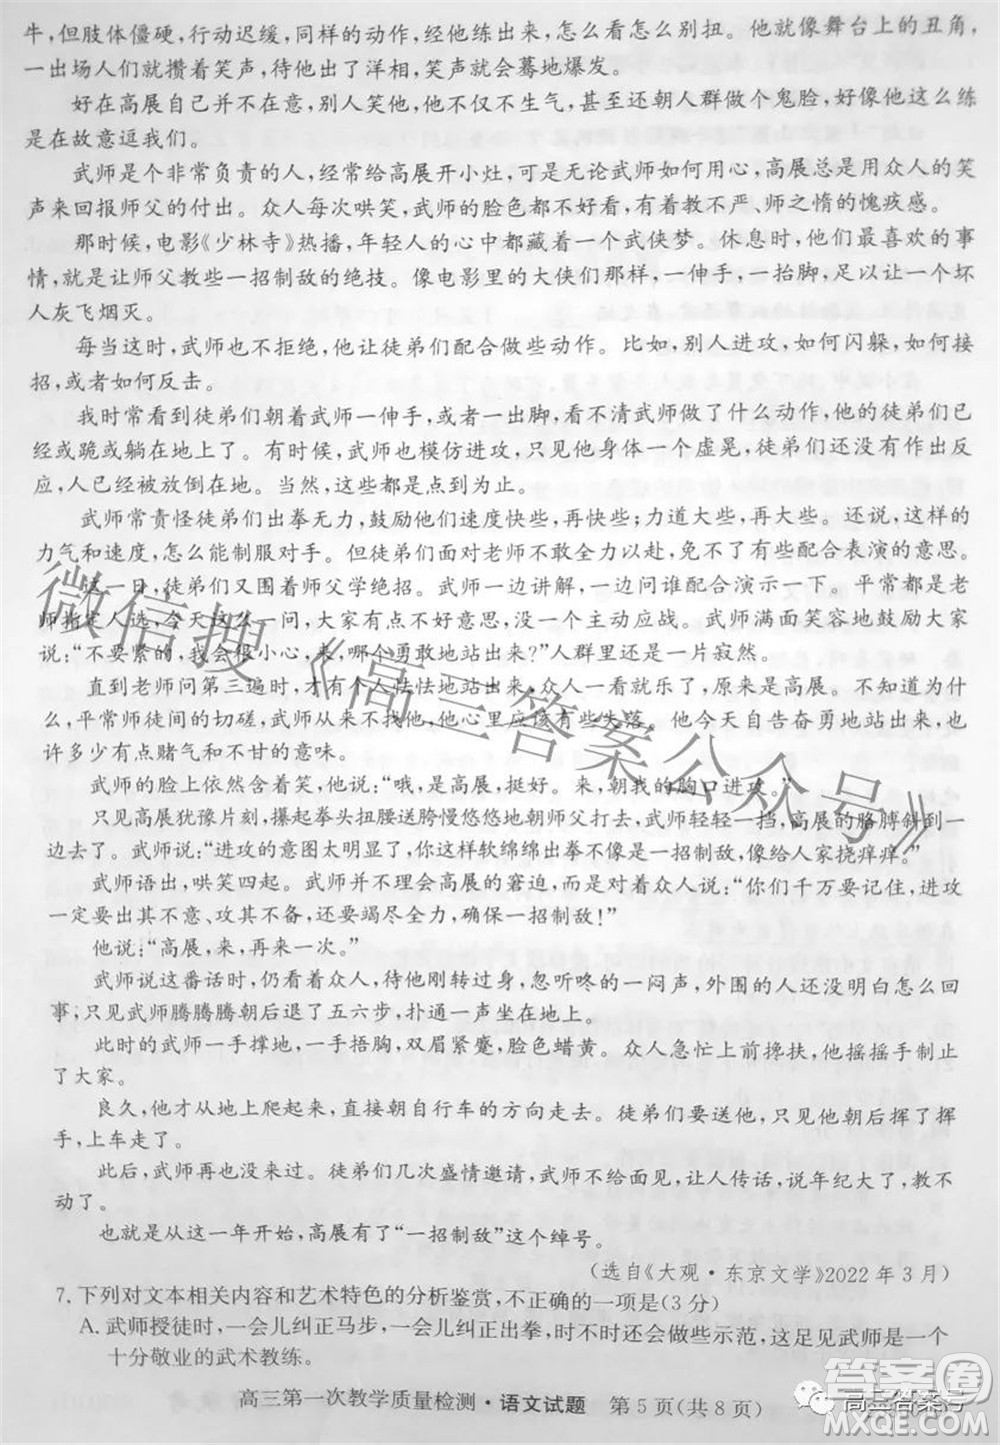 牛,但肢体僵硬,行动迟缓,同样的动作,经他练出来,怎么看怎么别扭。他就像舞台上的丑角,
一出场人们就攒着笑声,待他出了洋相,笑声就会蓦地爆发。
好在高展自己并不在意,别人笑他,他不仅不生气,甚至还朝人群做个鬼脸,好像他这么练
是在故意逗我们。
武师是个非常负责的人,经常给高展开小灶,可是无论武师如何用心,高展总是用众人的笑
声来回报师父的付出。众人每次哄笑,武师的脸色都不好看,有着教不严、师之惰的愧疚感。
那时候,电影《少林寺》热播,年轻人的心中都藏着一个武侠梦。休息时,他们最喜欢的事
情,就是让师父教些一招制敌的绝技。像电影里的大侠们那样,一伸手,一抬脚,足以让一个坏
人灰飞烟灭。
每当这时,武师也不拒绝,他让徒弟们配合做些动作。比如,别人进攻,如何闪躲,如何接
招,或者如何反击。
我时常看到徒弟们朝着武师一伸手,或者一出脚,看不清武师做了什么动作,他的徒弟们已
经或跪或躺在地上了。有时候,武师也模仿进攻,只见他身体一个虚晃,徒弟们还没有作出反
应,人已经被放倒在地。当然,这些都是点到为止。
武师常责怪徒弟们出拳无力,鼓励他们速度快些,再快些;力道大些,再大些。还说,这样的
力气和速度,怎么能制服对手。但徒弟们面对老师不敢全力以赴,免不了有些配合表演的意思。
这一日,徒弟们又围着师父学绝招。武师一边讲解,一边问谁配合演示一下。平常都是老
师指定人选,今天这么一问,大家有点不好意思,没有主动应战。武师满面笑容地鼓励大家
说:“不要紧的,我会很小心,来,哪个勇敢地站出来?”人群里还是一片寂然。
直到老师问第三遍时,才有个人怯怯地站出来,众人一看就乐了,原来是高展。不知道为什
么,平常师徒间的切磋,武师从来不找他,他心里应该有些失落。他今天自告奋勇地站出来,也
许多少有点赌气和不甘的意味。
武师的脸上依然含着笑,他说:“哦,是高展,挺好。来,朝我的胸口进攻。”
只见高展犹豫片刻,攥起拳头扭腰送胯慢悠悠地朝师父打去,武师轻轻一挡,高展的胳膊斜到一
边去了。武师说:“进攻的意图太明显了,你这样软绵绵出拳不像是一招制敌,像给人家挠痒痒。”
武师语出,哄笑四起。武师并不理会高展的窘迫,而是对着众人说:“你们千万要记住,进攻
一定要出其不意、攻其不备,还要竭尽全力,确保一招制敌!”
他说:“高展,来,再来一次。”
武师说这番话时,仍看着众人,待他刚转过身,忽听咚的一闷声,外围的人还没明白怎么回
事;只见武师腾腾腾朝后退了五六步,扑通一声坐在地上。
此时的武师一手撑地,一手捂胸,双眉紧蹙,脸色蜡黄。众人急忙上前搀扶,他摇摇手制止
了大家。
良久,他才从地上爬起来,直接朝自行车的方向走去。徒弟们要送他,只见他朝后挥了挥
手,上车走了。
此后,武师再也没来过。徒弟们几次盛情邀请,武师不给面见,让人传话,说年纪大了,教不
动了。
也就是从这一年开始,高展有了“一招制敌”这个绰号。
(选自《大观·东京文学》2022年3月)
7. 下列对文本相关内容和艺术特色的分析鉴赏,不正确的一项是(3分)
A. 武师授徒时,一会儿纠正马步,一会儿纠正出拳,时不时还做些示范,这足见武师是一个
十分敬业的武术教练。
高三第一次教学质量检测·语文试题 第5页(共8页)
微信搜《高三答案公众号》
高三答案号
答案圈
MXQE.COM